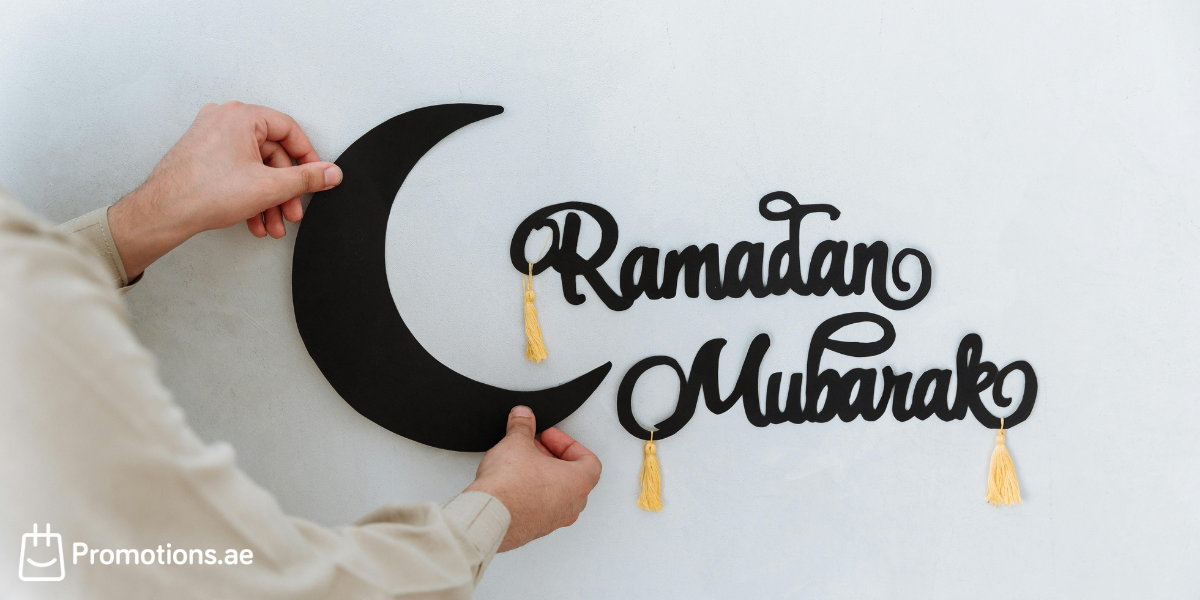 Ramadan
Mubarak
Promotions.ae